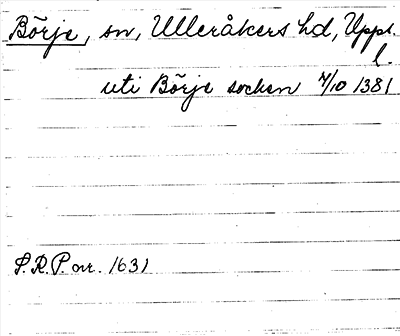 Börje, sn, Ulleråkers hd, Uppl.
l.
uti Börje socken 4/10 1381
S.R.P. nr. 1631